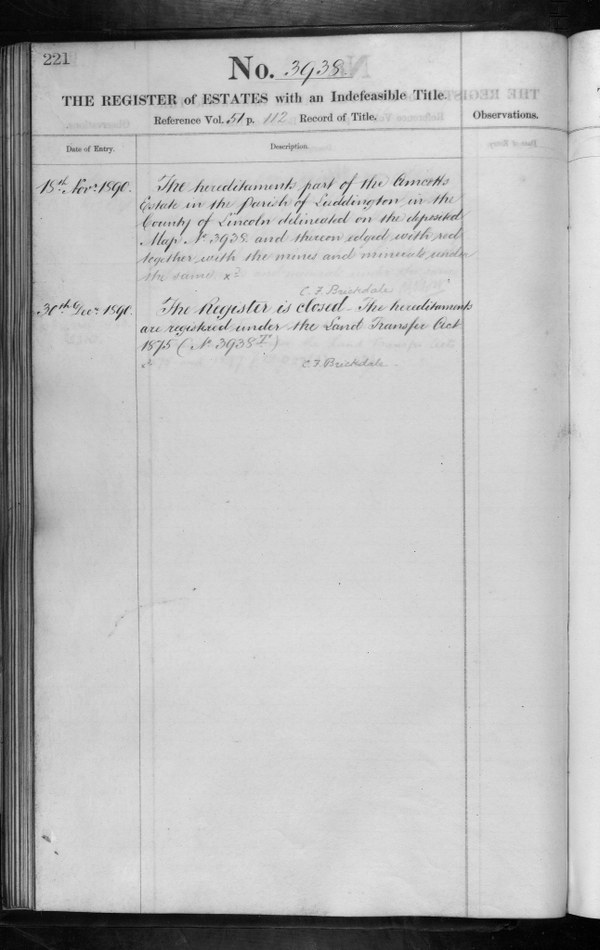 221
No. 3938
THE REGISTER of ESTATES with an Indefeasible Title.
Reference Vol. 51 p. 112 Record of Title.
Observations.
Date of Entry.
Description.
18th Novr. 1890.
The hereditaments part of the Amcotts
Estate in the Parish of Luddington in the
County of Lincoln delineated on the deposited
Map No 3938 and thereon edged with red
together with the mines and minerals under
the same
C. F Brickdale
30th Decr. 1890.
The Register is closed. The hereditaments
are registered under the Land Transfer Act
1875 (No 3938 )
C. F Brickdale.